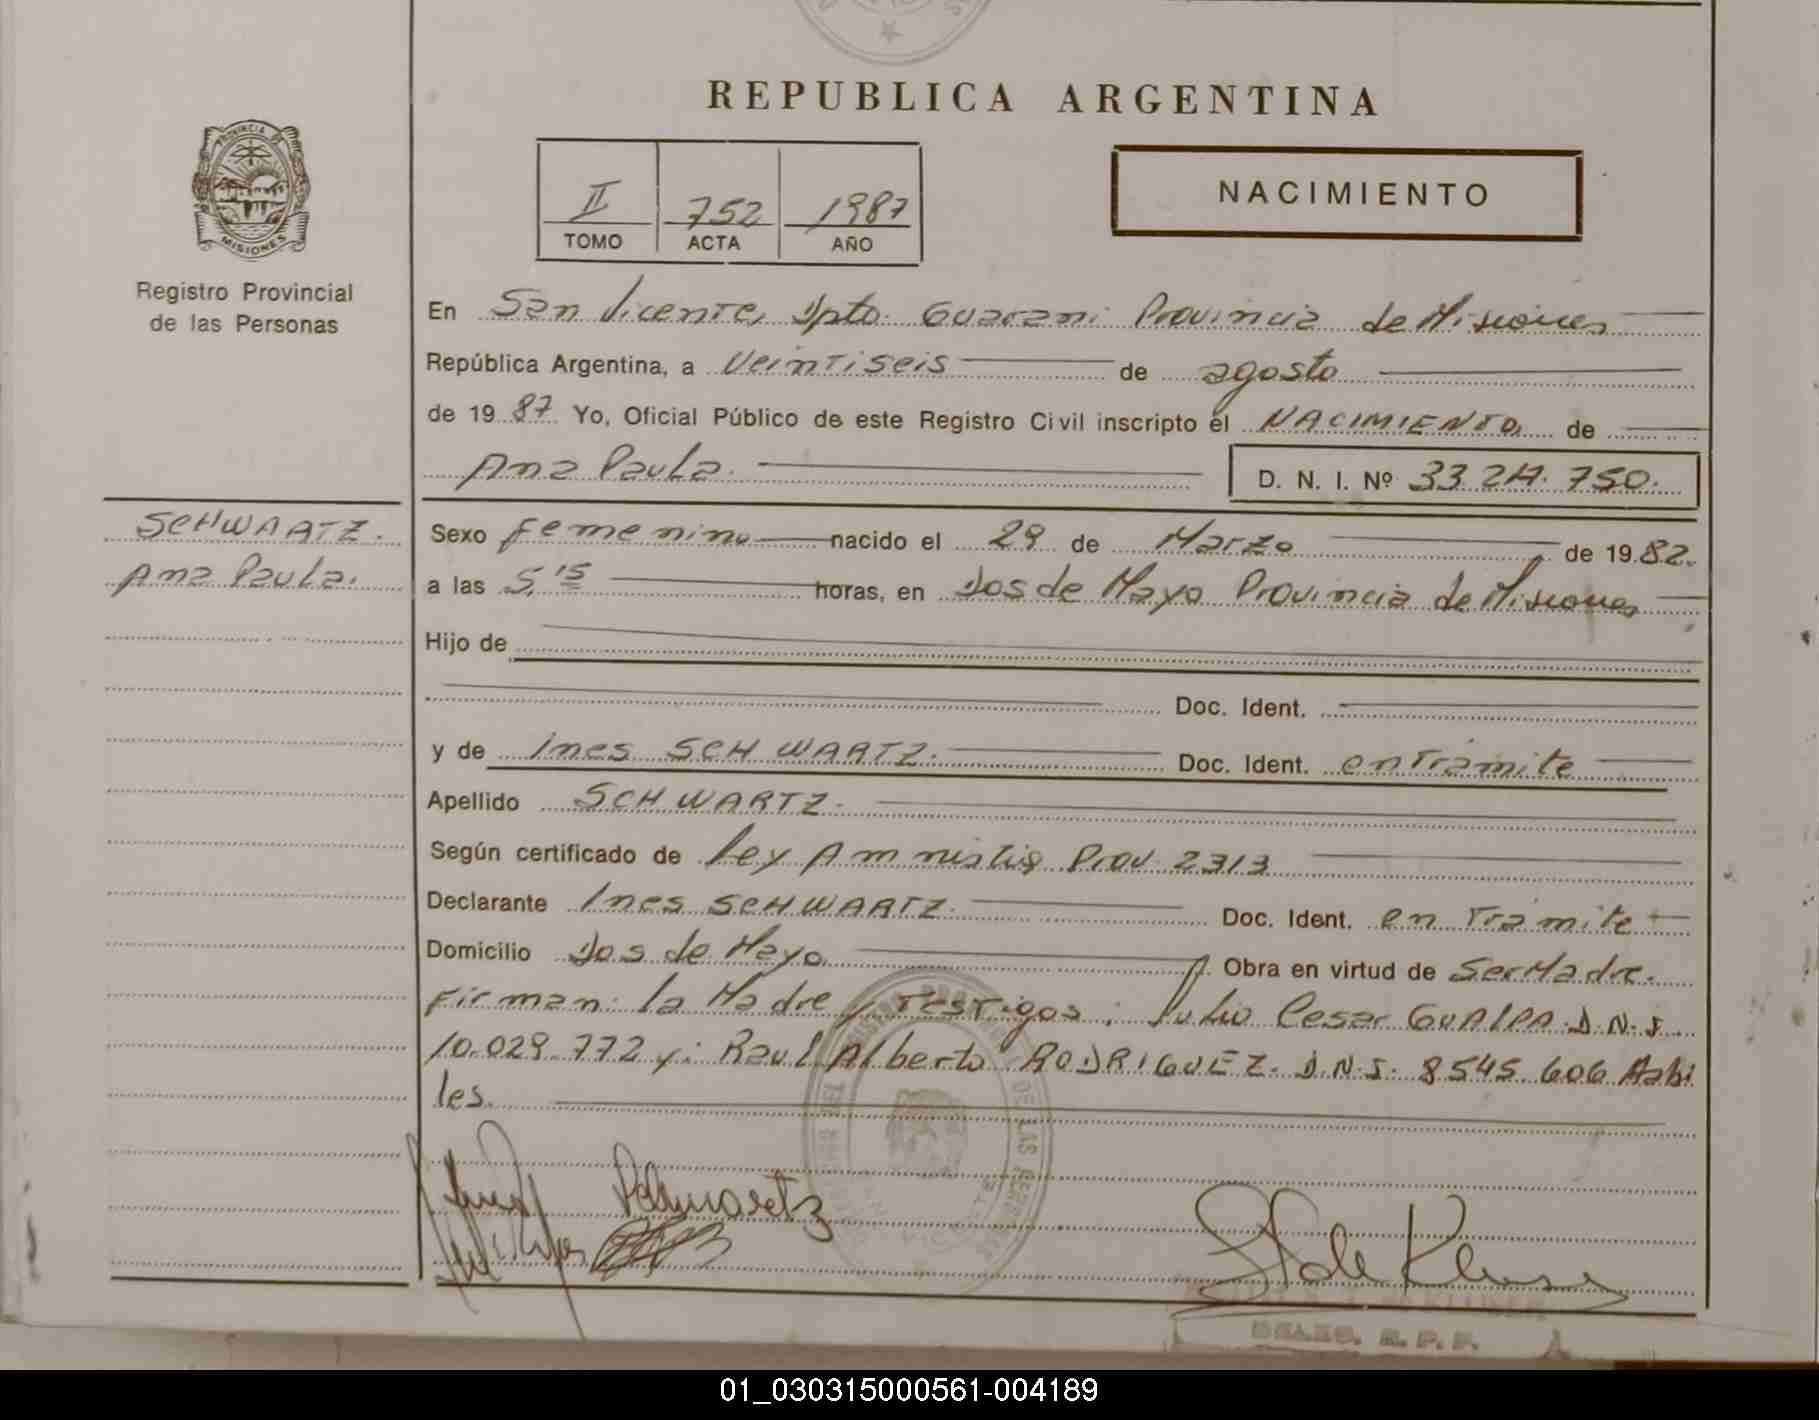 REPUBLICA ARGENTINA
PROVINCIA DE
MISIONES
Registro Provincial
de las Personas
II 752 1987
TOMO ACTA AÑO
NACIMIENTO
En San Vicente, Dpto. Guarani Provincia de Misiones
República Argentina, a Veintiseis de agosto
de 1987 Yo, Oficial Público de este Registro Civil inscripto el NACIMIENTO de
Ana Paula. D. N. I. Nº 33.214.750.
SCHWARTZ.
Ana Paula.
Sexo femenino nacido el 29 de Marzo de 1982.
a las 5,15 horas, en Dos de Mayo Provincia de Misiones
Hijo de
Doc. Ident.
y de Ines SCHWARTZ. Doc. Ident. en Tramite
Apellido SCHWARTZ.
Según certificado de Ley Amnistia Prov. 2313
Declarante Ines SCHWARTZ. Doc. Ident. en Tramite
Domicilio Dos de Mayo Obra en virtud de Ser Madre.
Firman: la Madre y Testigos: Julio Cesar GUALPA D.N.I.
10.029.772 y: Raul Alberto RODRIGUEZ. D.N.I. 8545.606 Habi
les.
Schwartz
01_030315000561-004189